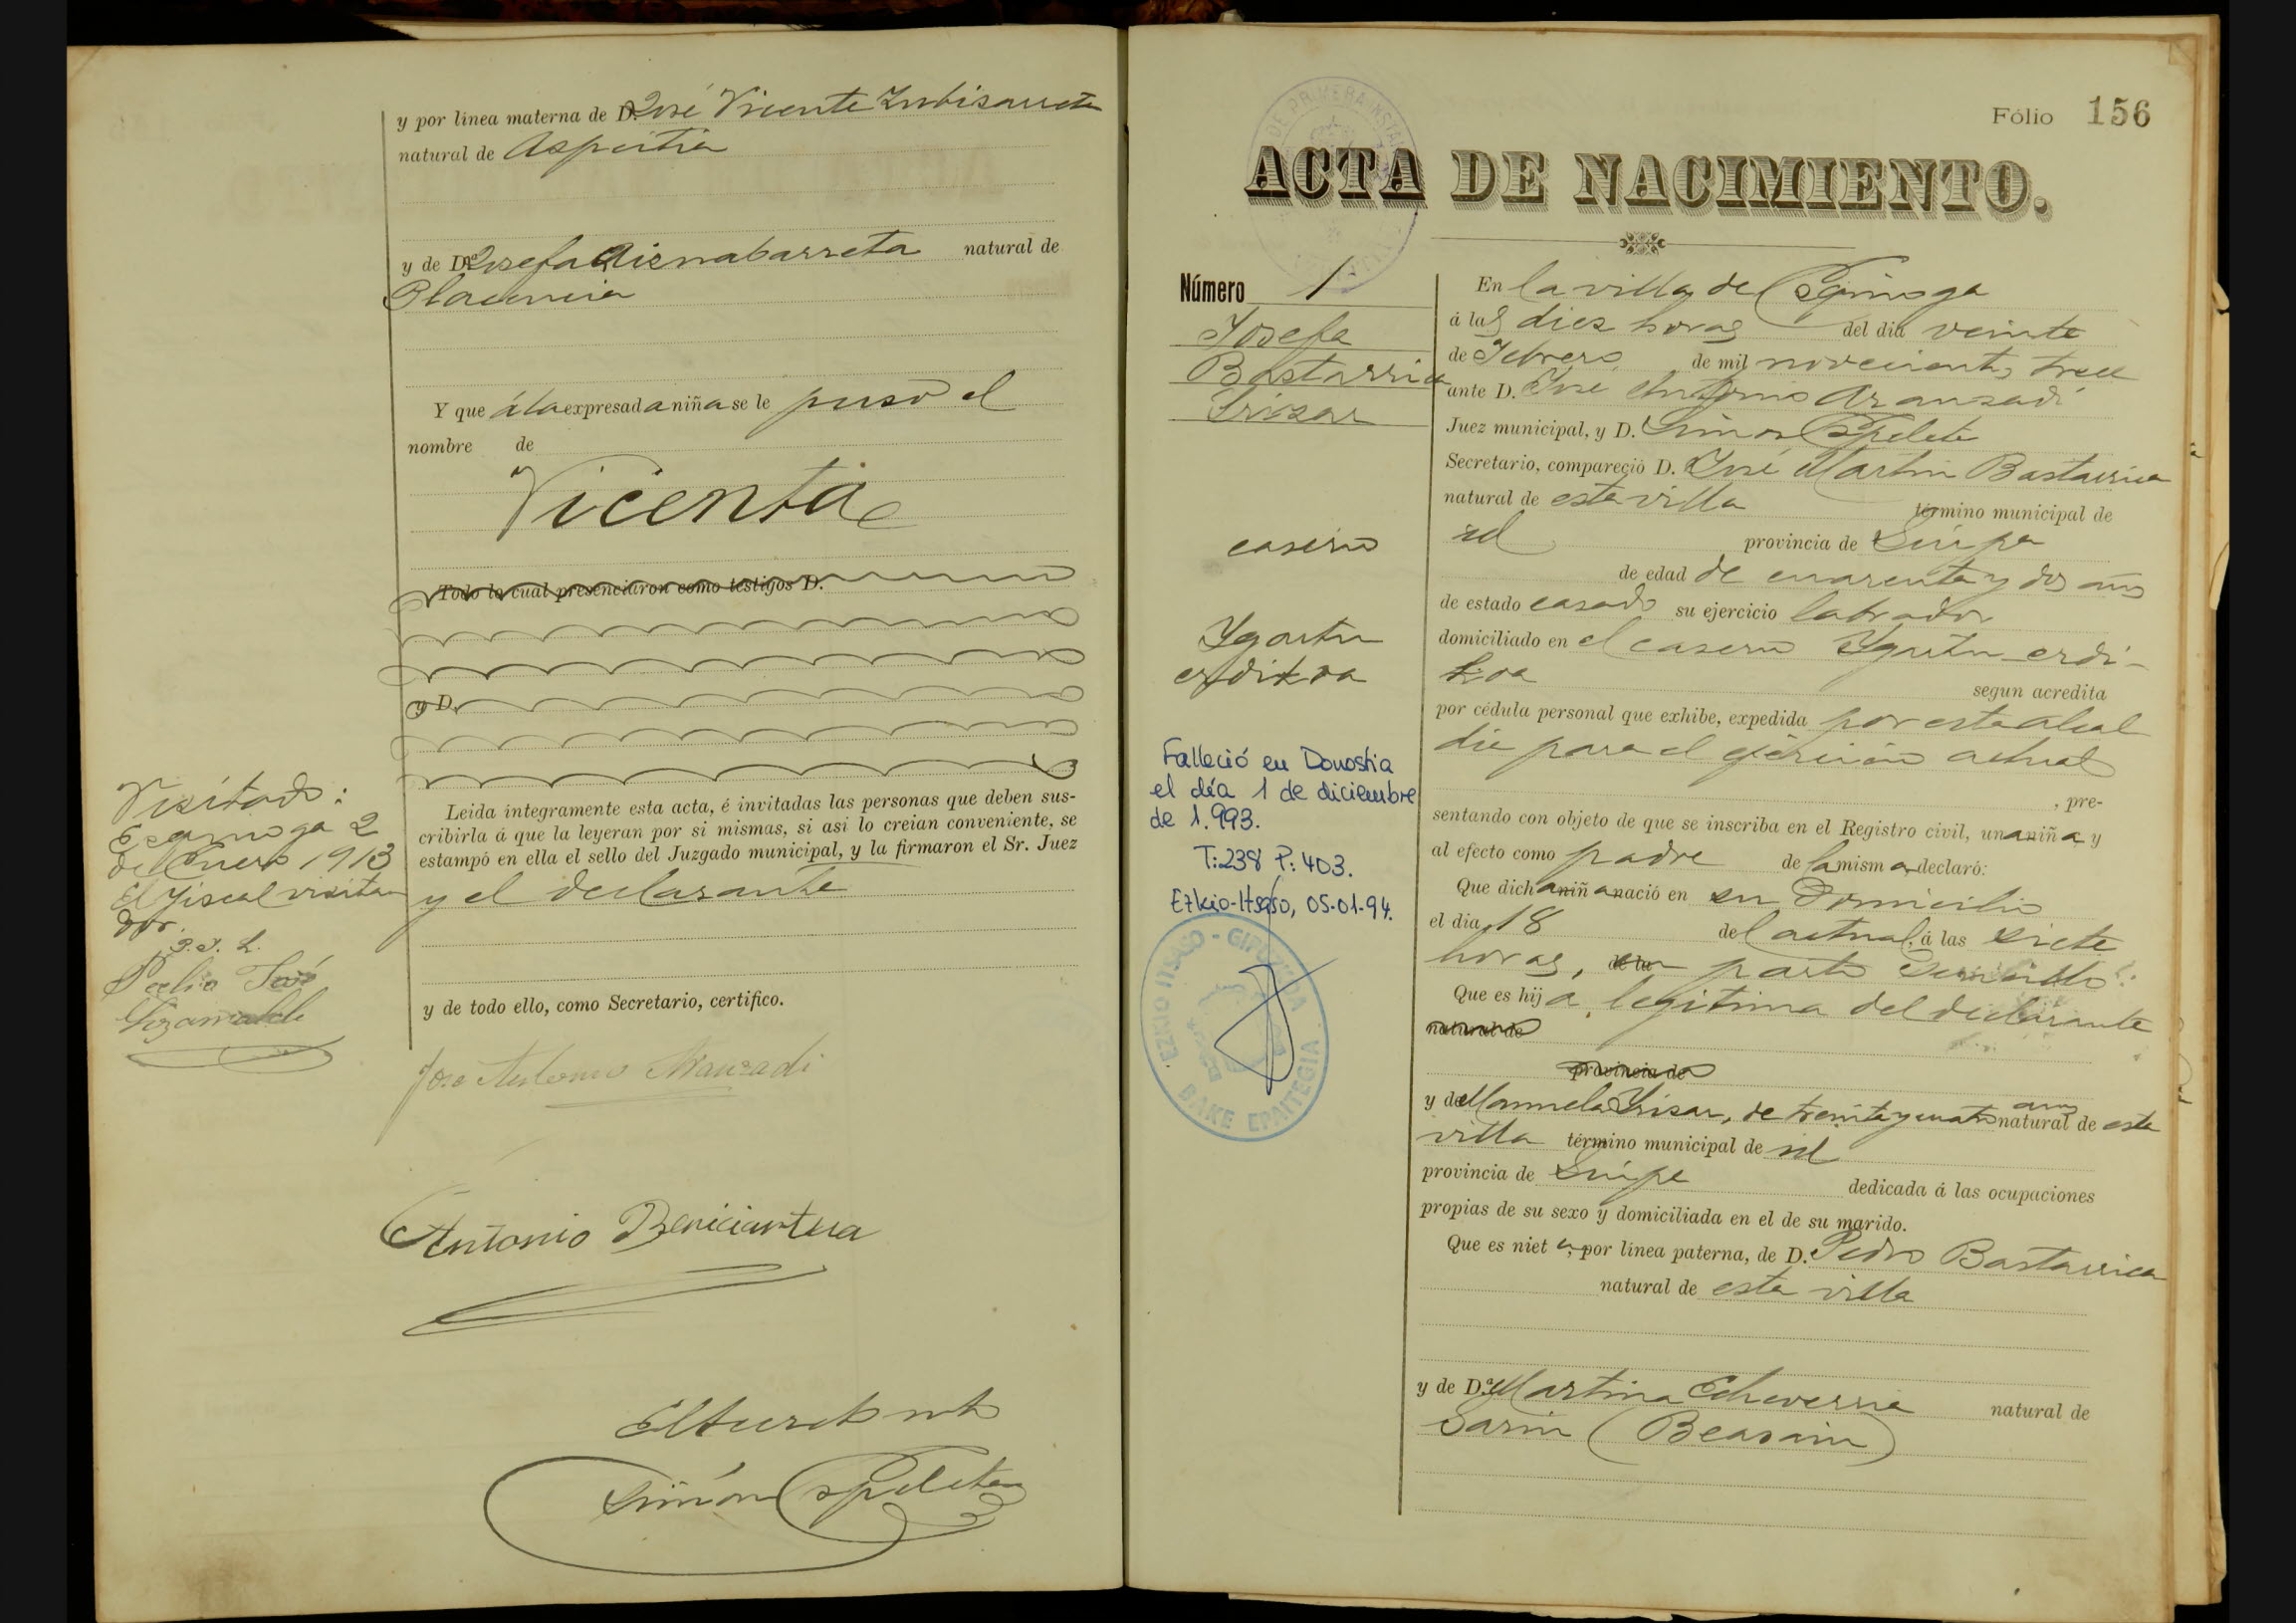 y por línea materna de D. José Vicente Zubizarreta
natural de Aspeitia
y de Dª Josefa natural de
Placencia
Y que á la expresada niña se le puso el
nombre de
Vicenta
Todo lo cual presenciaron como testigos D.
y D.
Leida íntegramente esta acta, é invitadas las personas que deben sus-
cribirla á que la leyeran por si mismas, si asi lo creian conveniente, se
estampó en ella el sello del Juzgado municipal, y la firmaron el Sr. Juez
y el declarante
y de todo ello, como Secretario, certifico.
Jose Antonio Aranzadi
Antonio
Simón Espeleta
Visitado:
Ezquioga 2
de Enero 1913
El Fiscal visita
dor.
Fólio 156
ACTA DE NACIMIENTO.
Número 1
Josefa
Bastarrica
Irizar
caserio
Ygartu
erdikoa
Falleció en Donostia
el día 1 de diciembre
de 1.993.
T:238 P: 403.
Ezkio-Itsaso, 05-01-94.
EZKIO ITSASO - GIPUZKOA
BAKE EPAITEGIA
En la villa de Ezquioga
á las diez horas del dia veinte
de Febrero de mil novecientos trece
ante D. José Antonio Aranzadi
Juez municipal, y D. Simon Espeleta
Secretario, compareció D. José Martin Bastarrica
natural de esta villa término municipal de
id provincia de Guipa
de edad de cuarenta y dos años
de estado casado su ejercicio labrador
domiciliado en el caserio Ygartu-erdi-
koa segun acredita
por cédula personal que exhibe, expedida por esta alcal
dia para el ejercicio actual
, pre-
sentando con objeto de que se inscriba en el Registro civil, una niña, y
al efecto como padre de la misma, declaró:
Que dicha niña nació en su domicilio
el dia 18 del actual, á las siete
horas, de la parto sencillo:
Que es hija legitima del declarante
natural de
provincia de
y de Manuela Irizar, de treinta y cuatro años natural de esta
villa término municipal de id
provincia de Guipa dedicada á las ocupaciones
propias de su sexo y domiciliada en el de su marido.
Que es nieta, por línea paterna, de D. Pedro Bastarrica
natural de esta villa
y de D.ª Martina Echeverria natural de
Garin (Beasain)